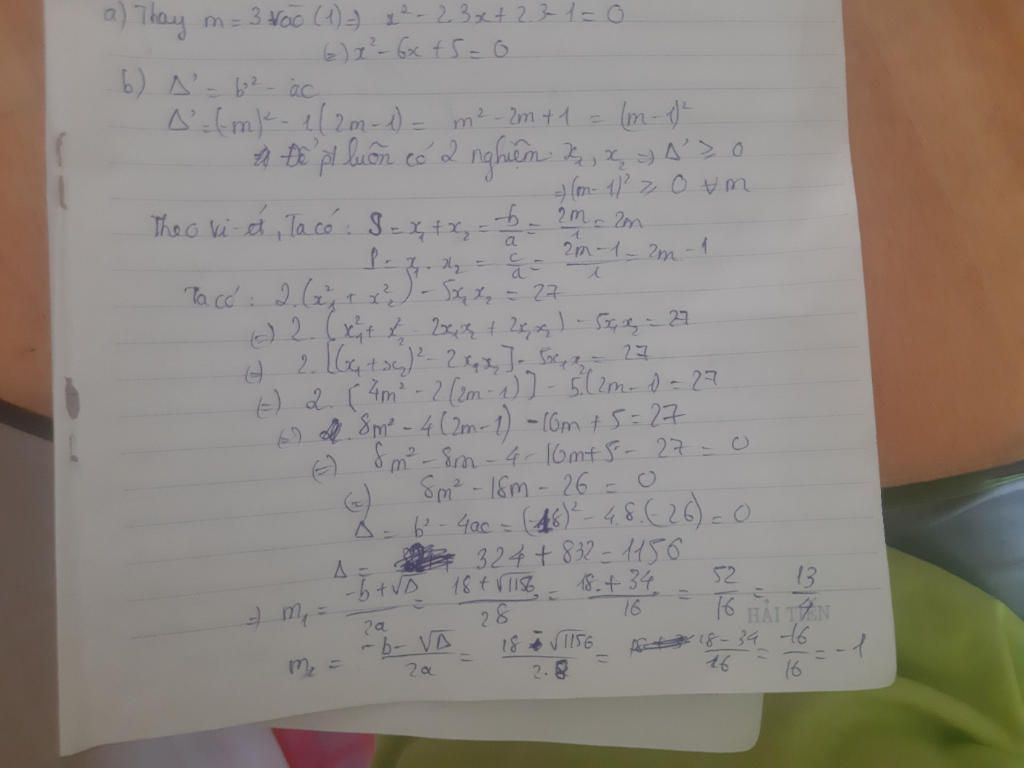 a) Thay m = 3 vào (1) => x² - 2.3x + 2.3 - 1 = 0
(=) x² - 6x + 5 = 0
b) Δ' = b'² - ac
Δ' = (-m)² - 1(2m - 1) = m² - 2m + 1 = (m - 1)²
Để pt luôn có 2 nghiệm x₁, x₂ => Δ' ≥ 0
=> (m - 1)² ≥ 0 ∀m
Theo vi-ét, Ta có : S = x₁ + x₂ = -b/a = 2m/1 = 2m
P = x₁ . x₂ = c/a = 2m - 1/1 = 2m - 1
Ta có : 2.(x₁² + x₂²) - 5x₁x₂ = 27
(=) 2. (x₁² + x₂² - 2x₁x₂ + 2x₁x₂) - 5x₁x₂ = 27
(=) 2. [(x₁ + x₂)² - 2x₁x₂] - 5x₁x₂ = 27
(=) 2. [4m² - 2(2m - 1)] - 5.(2m - 1) = 27
(=) 8m² - 4(2m - 1) - 10m + 5 = 27
(=) 8m² - 8m - 4 - 10m + 5 - 27 = 0
(=) 8m² - 18m - 26 = 0
Δ = b² - 4ac = (-18)² - 4.8.(-26) = 0
Δ = 324 + 832 = 1156
=> m₁ = -b + √Δ/2a = 18 + √1156/2.8 = 18 + 34/16 = 52/16 = 13/4
HẢI TIẾN
m₂ = -b - √Δ/2a = 18 - √1156/2.8 = 18 - 34/16 = -16/16 = -1